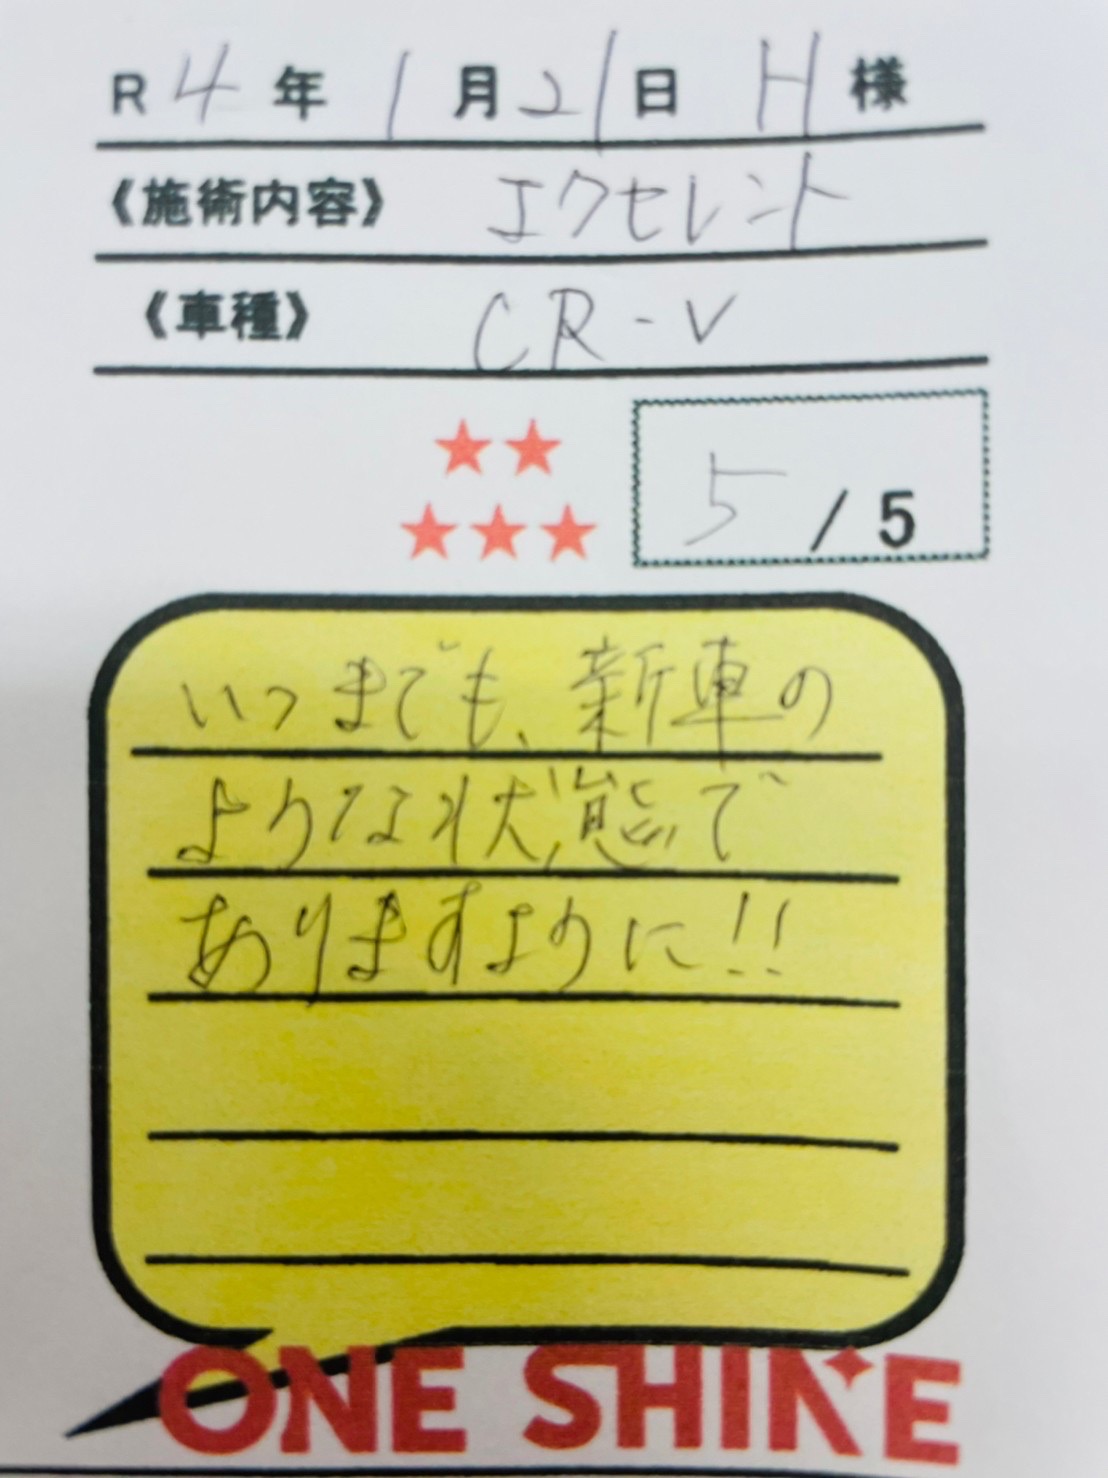 R4年1月21日 H様
《施術内容》 エクセレント
《車種》 CR-V
★★
★★★ 5/5
いつまでも、新車の
ような状態で
ありますように!!
ONE SHINE